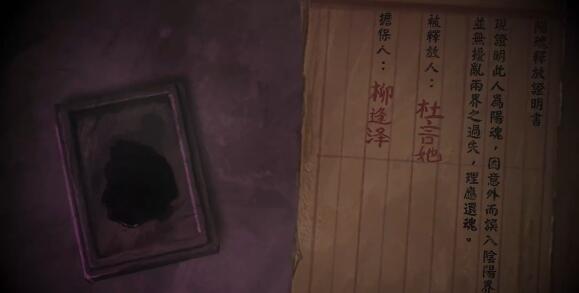 陽魂釋放證明書
現證明此人爲陽魂，因意外而誤入陰陽界
並無擾亂兩界之過失，理應還魂。
被釋放人：杜言她
擔保人：柳逢泽